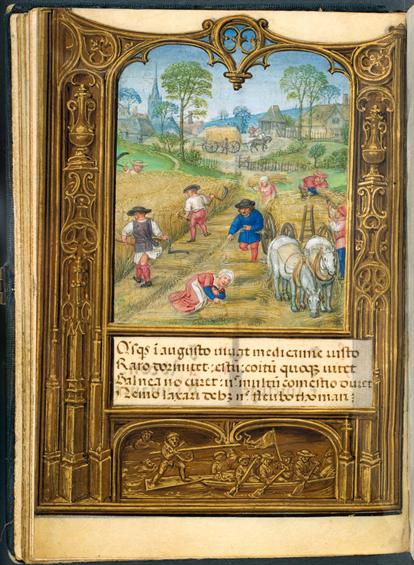 Qsqs ī augusto vivat medicamine iusto
Raro dormitet : estū : coitū quoqz vitet
Balnea nō curet : nc multū comestio duret
Nemo laxari debz nc fleubothomari :